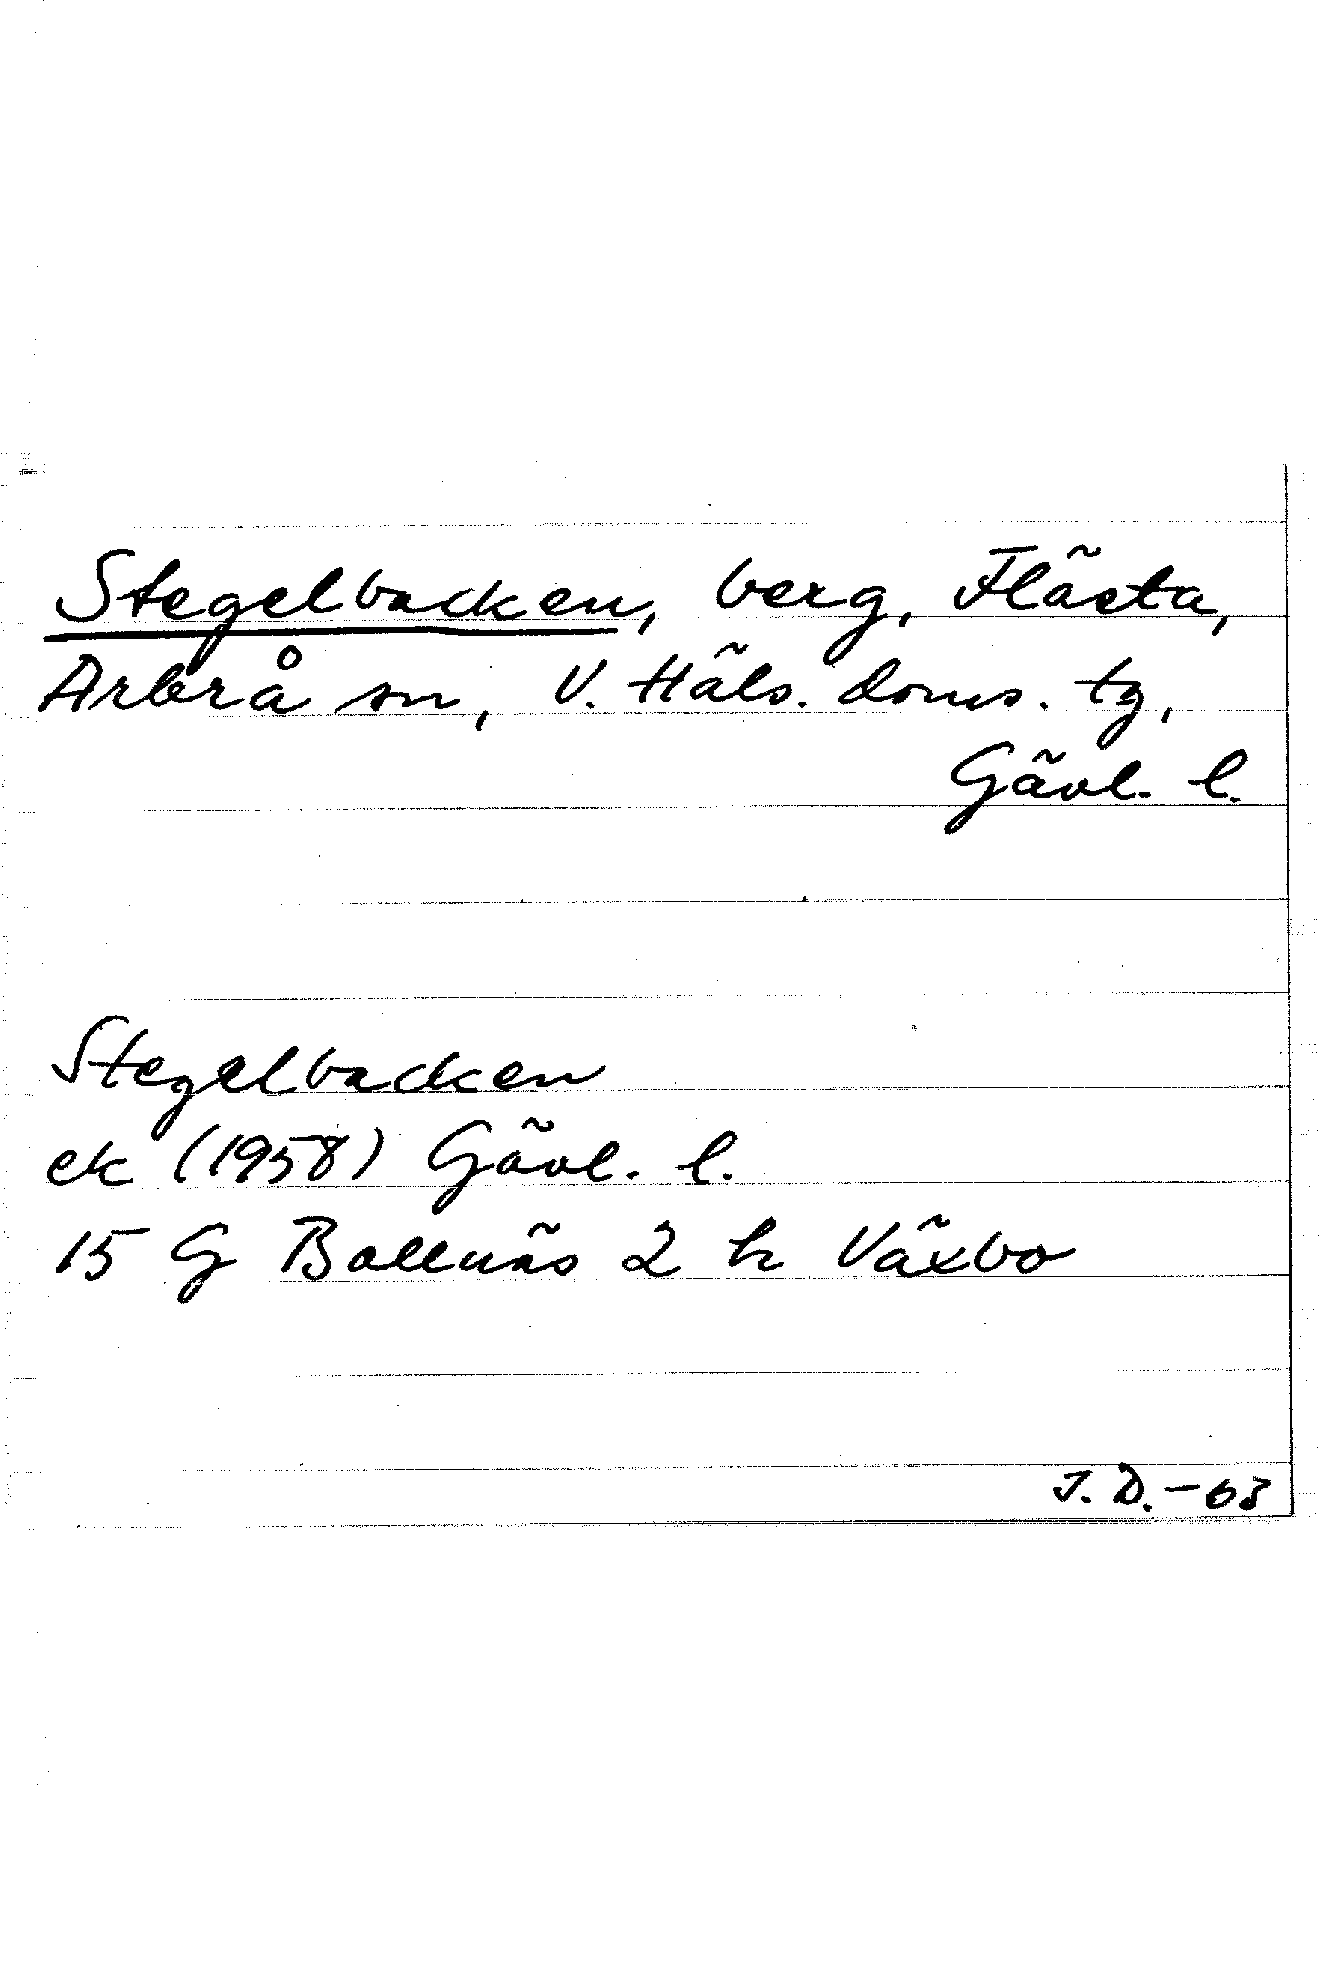 Stegelbacken, berg, Flästa,
Arbrå sn, V. Häls. doms. tg,
Gävl. l.
Stegelbacken
ek (1958) Gävl. l.
15 G Bollnäs 2 h Växbo
J. D. -63